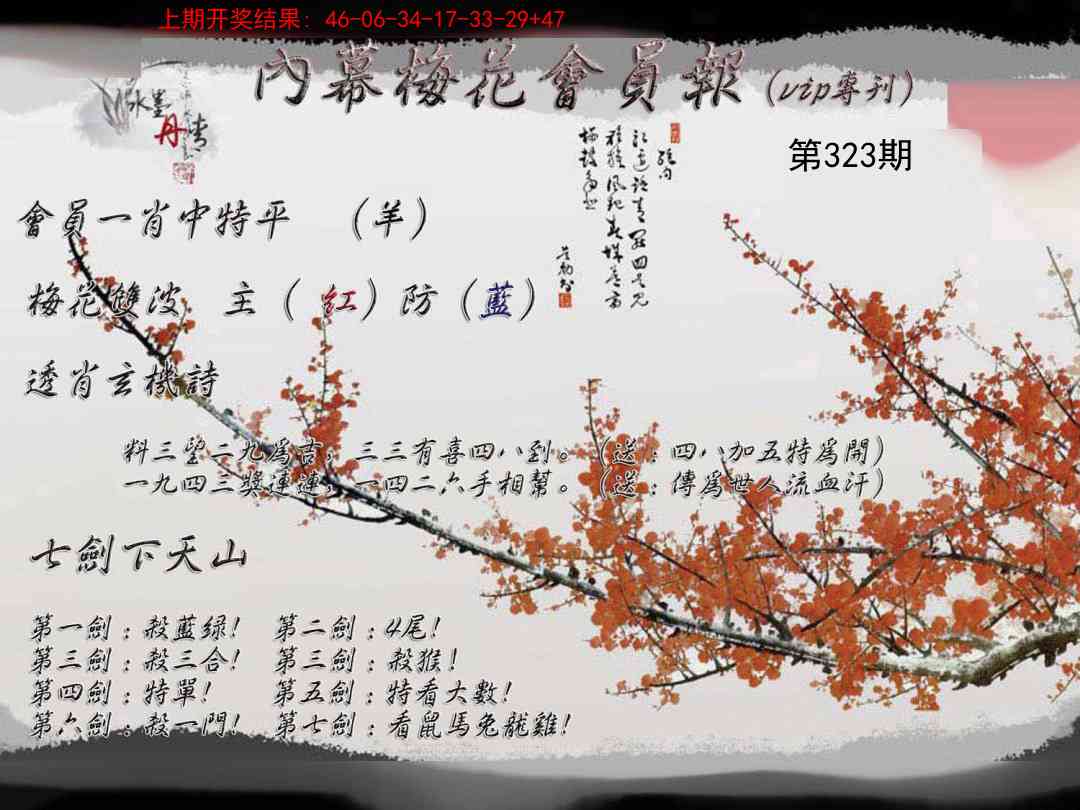 上期开奖结果: 46-06-34-17-33-29+47
內幕梅花會員報(vip專刊)
水墨丹青
第323期
會員一肖中特平 (羊)
梅花雙波 主(紅)防(藍)
透肖玄機詩
料三望二九爲吉, 三三有喜四八到。(送:四八加五特爲開)
一九四三獎連連, 一四二六手相幫。(送:傳爲世人流血汗)
七劍下天山
第一劍:殺藍绿! 第二劍:4尾!
第三劍:殺三合! 第三劍:殺猴!
第四劍:特單! 第五劍:特看大數!
第六劍:殺一門! 第七劍:看鼠馬兔龍雞!